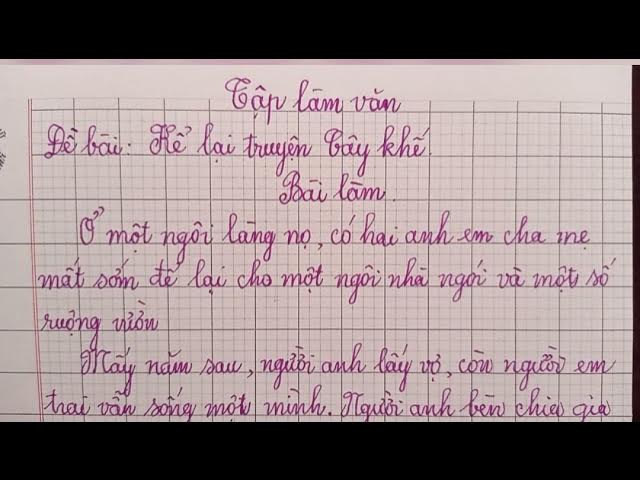 Tập làm văn
Đề bài: Kể lại truyện Cây khế.
Bài làm.
Ở một ngôi làng nọ, có hai anh em cha mẹ
mất sớm để lại cho một ngôi nhà ngói và một số
ruộng vườn
Mấy năm sau, người anh lấy vợ, còn người em
trai vẫn sống một mình. Người anh bèn chia gia